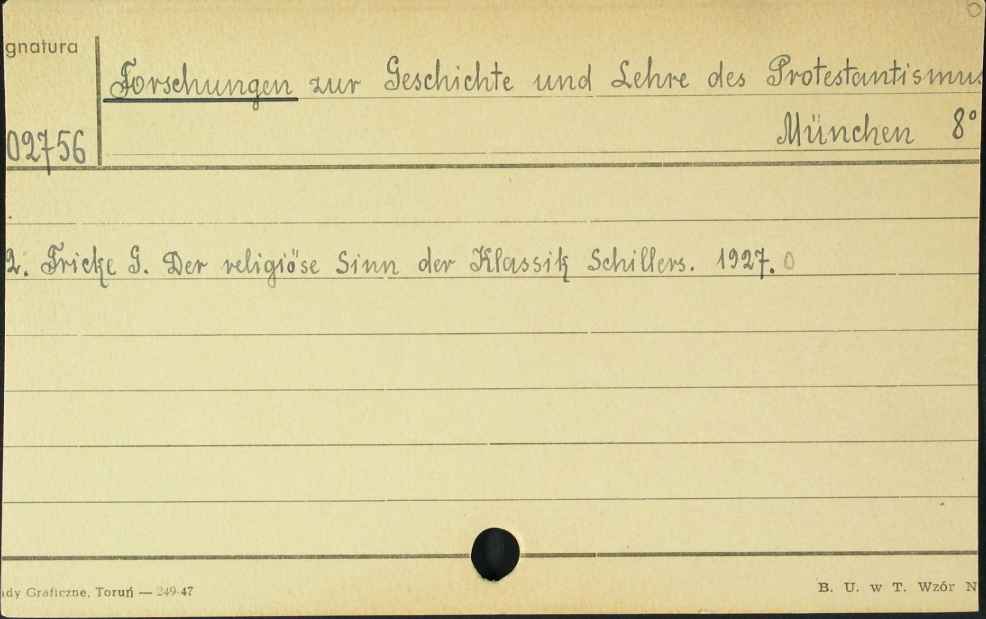 gnatura
Forschungen zur Geschichte und Lehre des Protestantismus
München 8°
02756
2. Fricke G. Der religiöse Sinn der Klassik Schillers. 1927. 0
ady Graficzne, Toruń — 249-47
B. U. w T. Wzór N